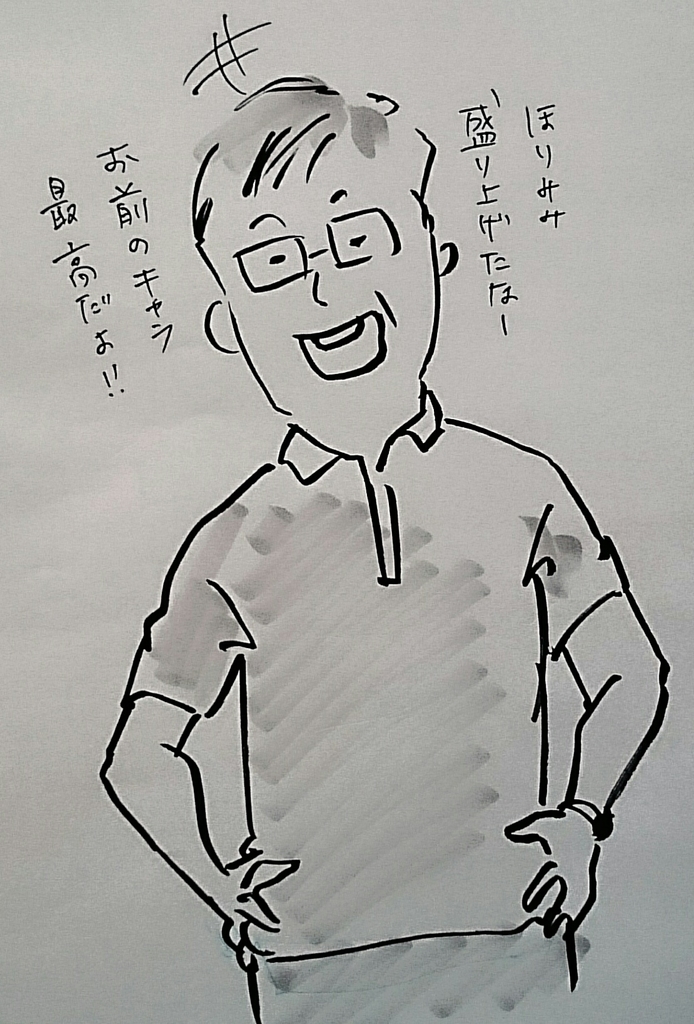 ほりみみ
盛り上げたなー
お前のキャラ
最高だよ!!